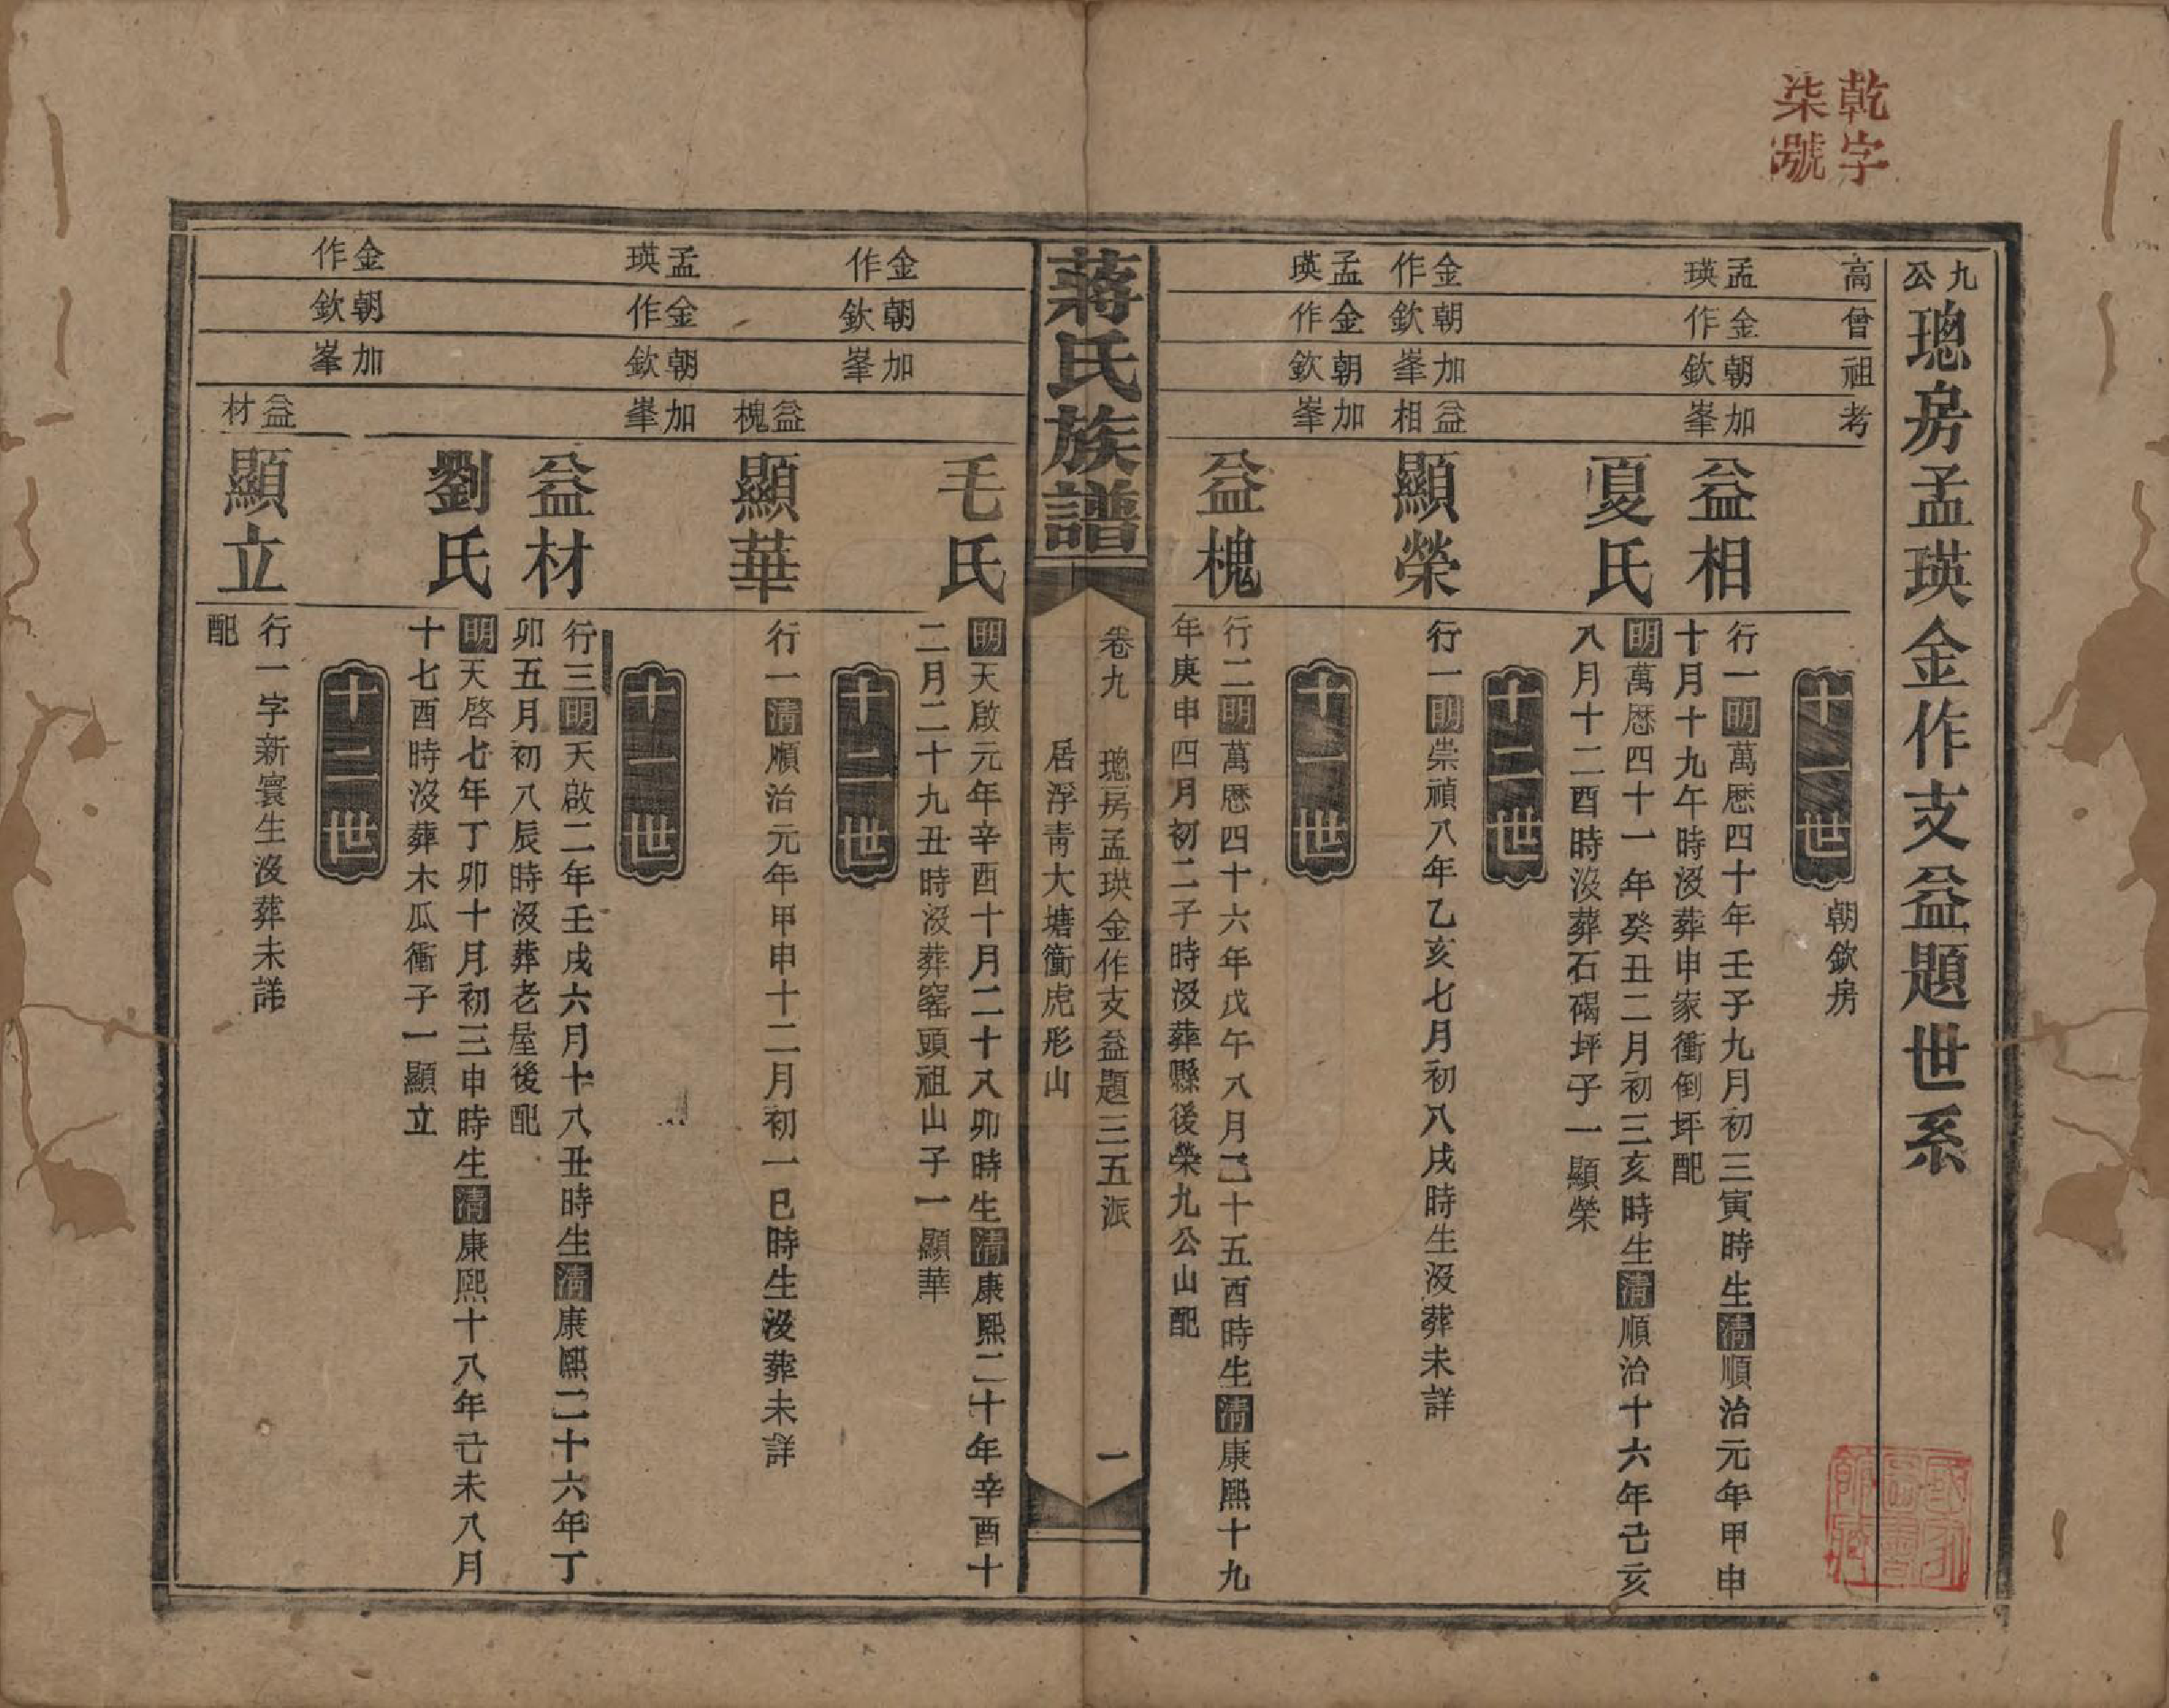 乾字
柒號
九公璁房孟瑛金作支益題世系
高曾祖考
十一世 朝欽房
孟瑛 金作 朝欽 加峯
益相
行一明萬曆四十年壬子九月初三寅時生清順治元年甲申
十月十九午時沒葬申家衝倒坪配
夏氏
明萬曆四十一年癸丑二月初三亥時生清順治十六年己亥
八月十二酉時沒葬石碣坪子一顯榮
十二世
金作 朝欽 加峯 益相
顯榮
行一明崇禎八年乙亥七月初八戌時生沒葬未詳
十一世
孟瑛 金作 朝欽 加峯
益槐
行二明萬曆四十六年戊午八月己十五酉時生清康熙十九
年庚申四月初二子時沒葬縣後榮九公山配
蔣氏族譜
卷九 璁房孟瑛金作支益題三五派 一
居浮青大塘衝虎形山
毛氏
明天啟元年辛酉十月二十八卯時生清康熙二十年辛酉十
二月二十九丑時沒葬窰頭祖山子一顯華
十二世
金作 朝欽 加峯 益槐
顯華
行一清順治元年甲申十二月初一巳時生沒葬未詳
十一世
孟瑛 金作 朝欽 加峯
益材
行三明天啟二年壬戌六月十八丑時生清康熙二十六年丁
卯五月初八辰時沒葬老屋後配
劉氏
明天啓七年丁卯十月初三申時生清康熙十八年己未八月
十七酉時沒葬木瓜衝子一顯立
十二世
金作 朝欽 加峯 益材
顯立
行一字新寰生沒葬未詳
配